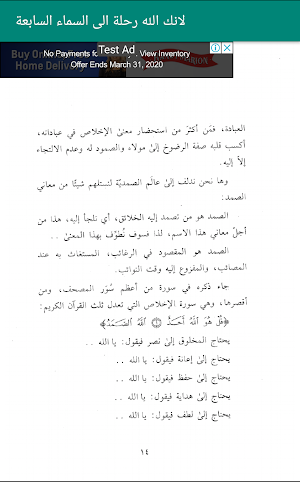 لانك الله رحلة الى السماء السابعة
No Payments fo
Test Ad
View Inventory
Offer Ends March 31, 2020
Home Delivery
العبادة، فمَن أكثرَ من استحضار معنىٰ الإخلاص في عباداته،
أكسب قلبه صفة الرضوخ إلىٰ مولاه والصمود له وعدم الالتجاء
إلاّ إليه.
وها نحن ندلف إلىٰ عالَم الصمديّة لنستلهم شيئًا من معاني
الصمد:
الصمد هو من تصمد إليه الخلائق، أي تلجأ إليه، هذا من
أجلّ معاني هذا الاسم، لذا فسوف نُطوّف بهذا المعنىٰ ..
الصمد هو المقصود في الرغائب، المستغاث به عند
المصائب، والمفزوع إليه وقت النوائب.
جاء ذكره في سورة من أعظم سُوَر المصحف، ومن
أقصرها، وهي سورة الإخلاص التي تعدل ثلث القرآن الكريم:
﴿قُلْ هُوَ ٱللَّهُ أَحَدٌ ۝ ٱللَّهُ ٱلصَّمَدُ﴾
يحتاج المخلوق إلىٰ نصر فيقول: يا الله ..
يحتاج إلىٰ إعانة فيقول: يا الله ..
يحتاج إلىٰ حفظ فيقول: يا الله ..
يحتاج إلىٰ هداية فيقول: يا الله ..
يحتاج إلىٰ لطف فيقول: يا الله ..
١٤